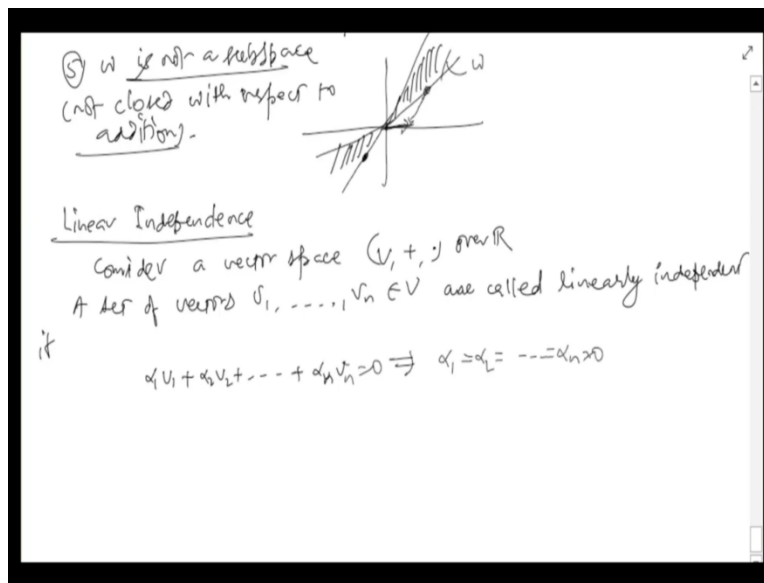 ⑤ W is not a subspace
(not closed with respect to
addition).
W
Linear Independence
Consider a vector space (V, +, ·) over ℝ
A set of vectors v₁, ....., vₙ ∈ V are called linearly independent
if
α₁v₁ + α₂v₂ + .... + αₙvₙ = 0 ⇒ α₁ = α₂ = ... = αₙ = 0